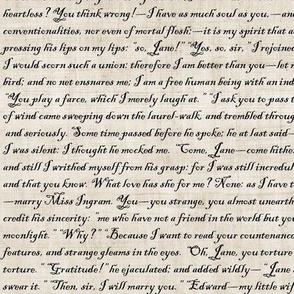 heartless? You think wrong!—I have as much soul as you,—and
conventionalities, nor even of mortal flesh:—it is my spirit that a
pressing his lips on my lips: "so, Jane!" "Yes, so, sir," I rejoined
I would scorn such a union: therefore I am better than you—let
bird; and no net ensnares me; I am a free human being with an ind
"You play a farce, which I merely laugh at." "I ask you to pass t
of wind came sweeping down the laurel-walk, and trembled throug
and seriously. "Some time passed before he spoke; he at last said—
I was silent: I thought he mocked me. "Come, Jane—come hithe
and still I writhed myself from his grasp: for I was still incredul
and that you know. What love has she for me? None: as I have t
—marry Miss Ingram. You—you strange, you almost unearth
credit his sincerity: "me who have not a friend in the world but yo
moonlight." "Why?" "Because I want to read your countenance
features, and strange gleams in the eyes. "Oh, Jane, you torture
torture." "Gratitude!" he ejaculated; and added wildly—"Jane
swear it." "Then, sir, I will marry you." "Edward—my little wif